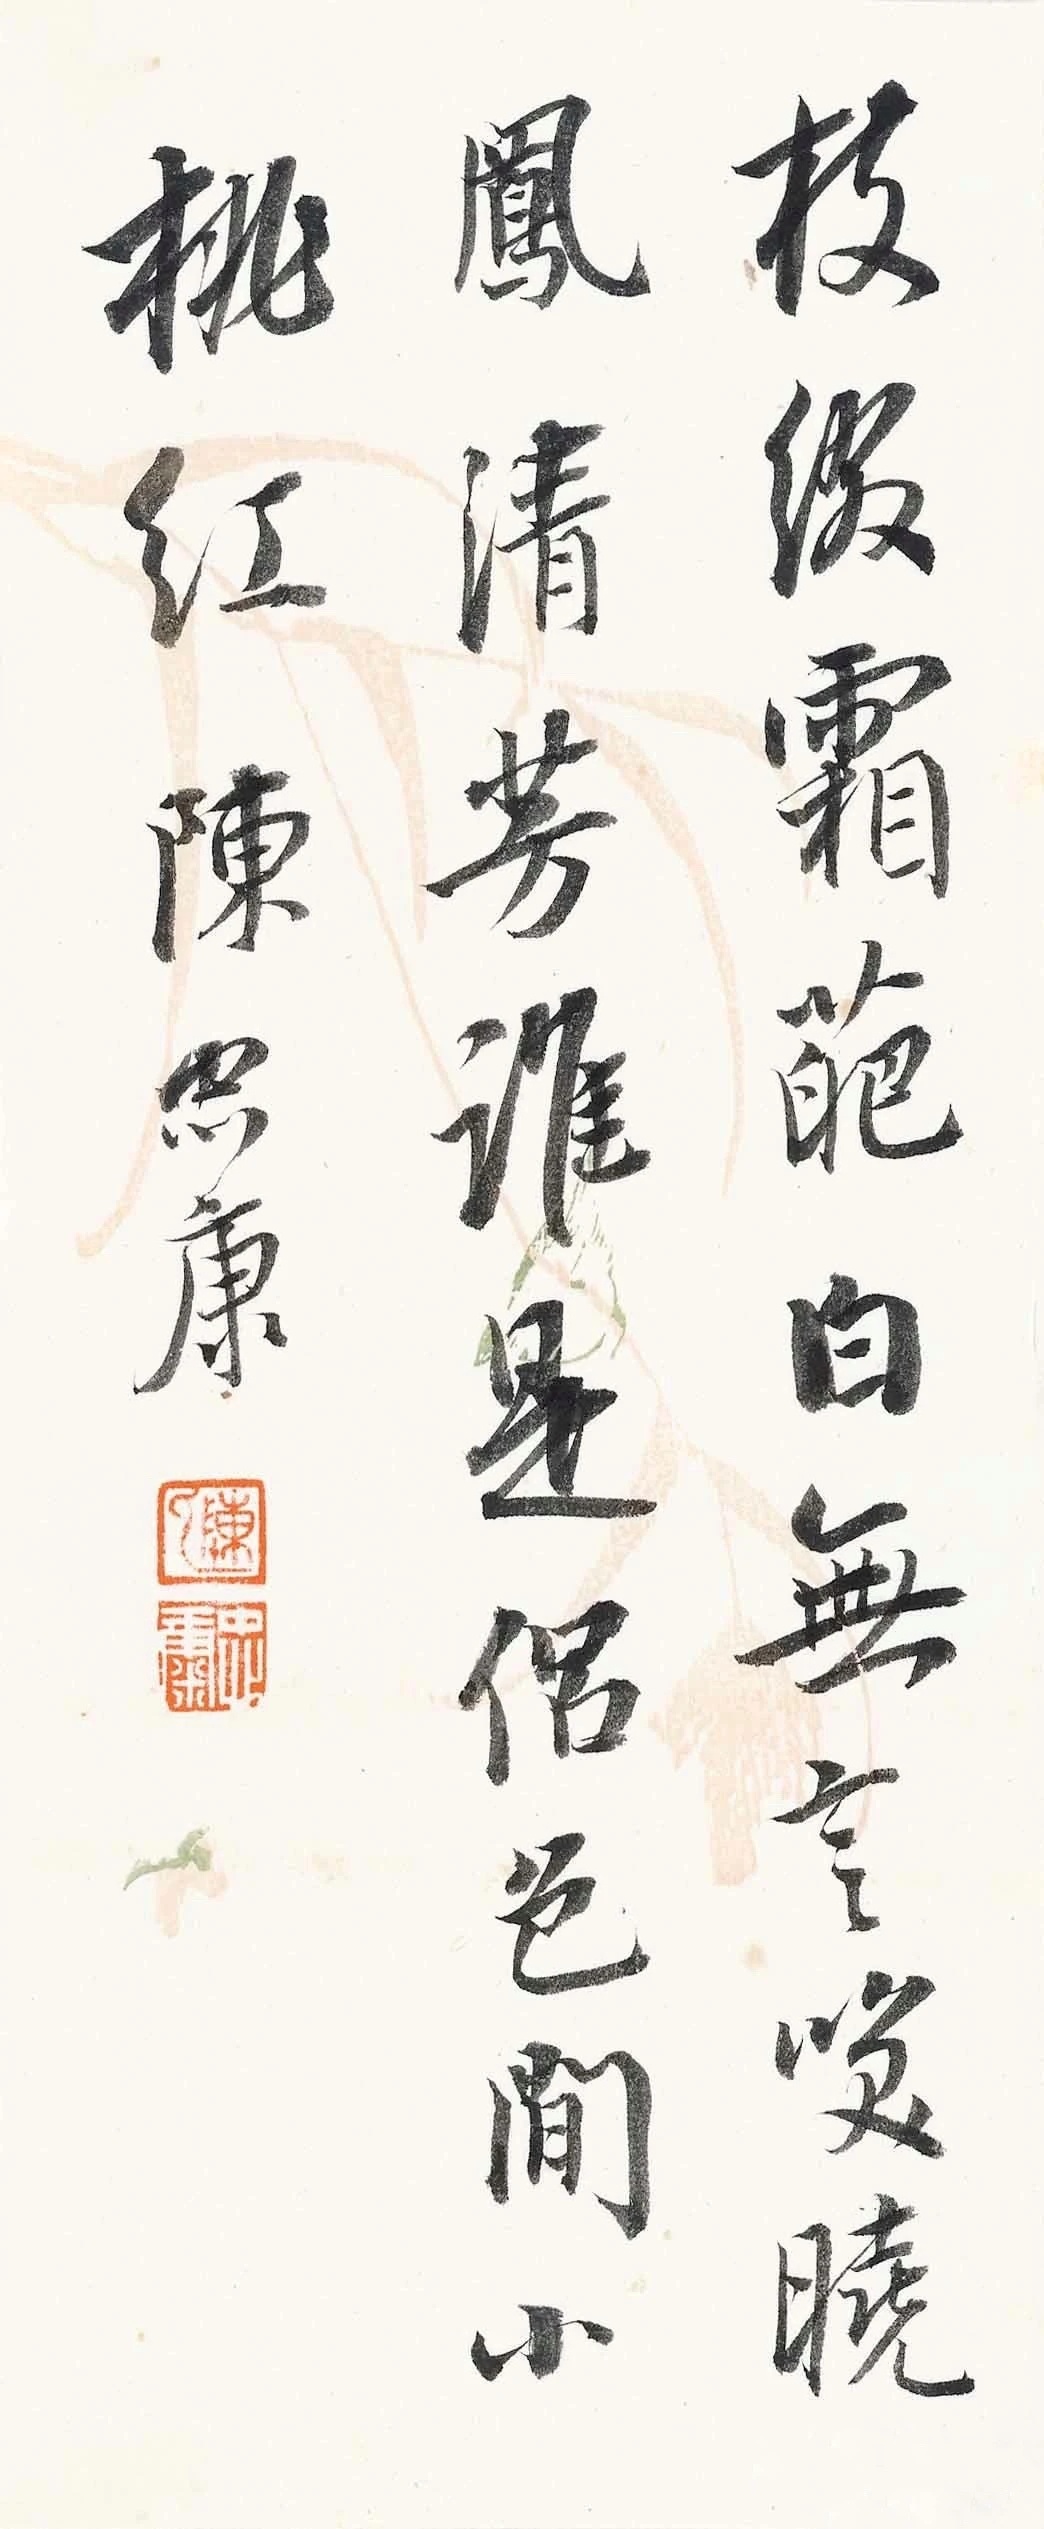 枝綴霜葩白無言咲曉
鳳清芳誰是侶色間小
桃紅陳忠康
陳
忠康